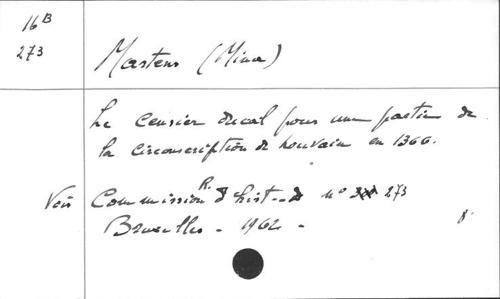 16 B
273
Martens (Mina)
Le Censier ducal pour une partie de
la circonscription de Louvain en 1366.
Voir Commission R. d'hist. n° 273
Bruxelles - 1962 -
8°